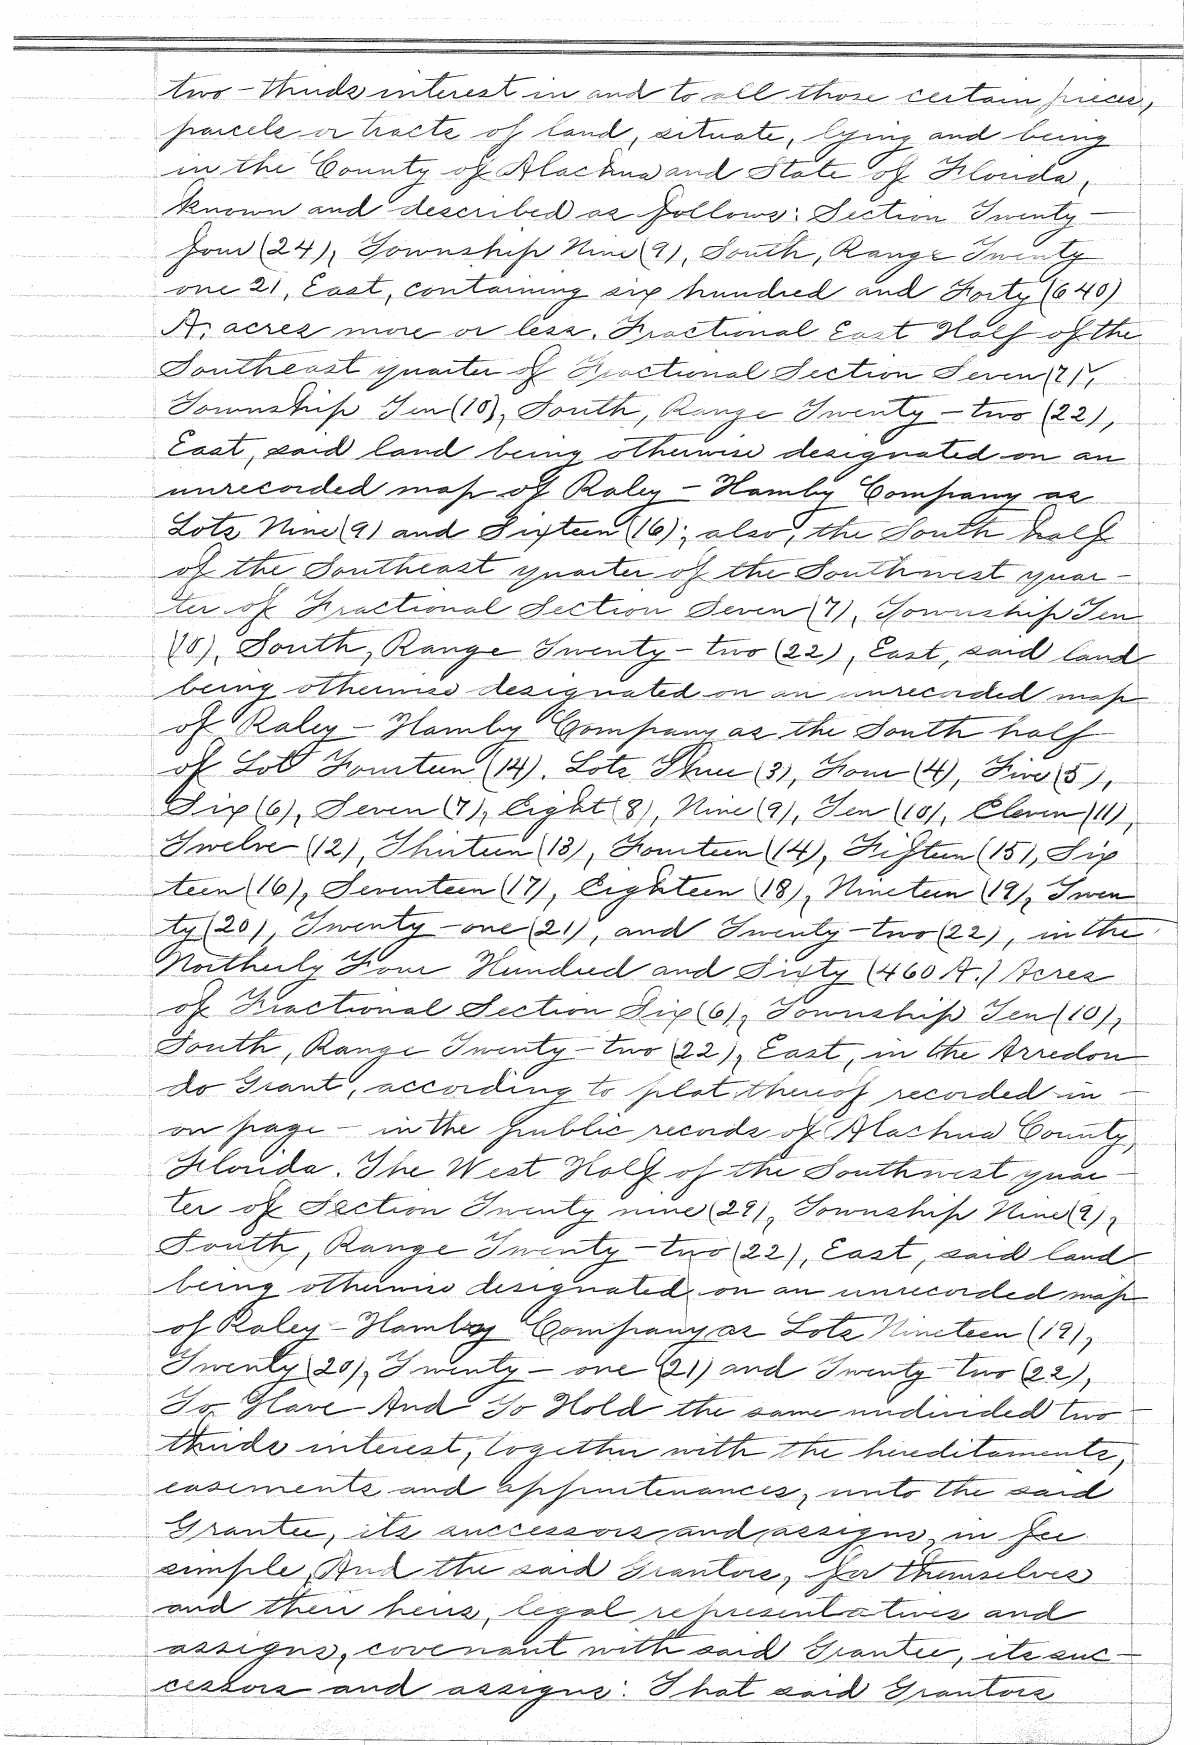 two-thirds interest in and to all those certain pieces,
parcels or tracts of land, situate, lying and being
in the County of Alachua and State of Florida,
known and described as follows: Section Twenty-
four (24), Township Nine (9), South, Range Twenty
one 21, East, containing six hundred and Forty (640)
A. acres more or less. Fractional East Half of the
Southeast quarter of Fractional Section Seven (7),
Township Ten (10), South, Range Twenty-two (22),
East, said land being otherwise designated on an
unrecorded map of Raley-Hamby Company as
Lots Nine (9) and Sixteen (16); also, the South half
of the Southeast quarter of the Southwest quar-
ter of Fractional Section Seven (7), Township Ten
(10), South, Range Twenty-two (22), East, said land
being otherwise designated on an unrecorded map
of Raley-Hamby Company as the South half
of Lot Fourteen (14). Lots Three (3), Four (4), Five (5),
Six (6), Seven (7), Eight (8), Nine (9), Ten (10), Eleven (11),
Twelve (12), Thirteen (13), Fourteen (14), Fifteen (15), Six
teen (16), Seventeen (17), Eighteen (18), Nineteen (19), Twen
ty (20), Twenty-one (21), and Twenty-two (22), in the
Northerly Four Hundred and Sixty (460 A.) Acres
of Fractional Section Six (6), Township Ten (10),
South, Range Twenty-two (22), East, in the Arredon
do Grant, according to plat thereof recorded in -
on page - in the public records of Alachua County,
Florida. The West Half of the Southwest quar-
ter of Section Twenty nine (29), Township Nine (9),
South, Range Twenty-two (22), East, said land
being otherwise designated on an unrecorded map
of Raley-Hamby Company as Lots Nineteen (19),
Twenty (20), Twenty-one (21) and Twenty-two (22),
To Have And To Hold the same undivided two-
thirds interest, together with the hereditaments,
easements and appurtenances, unto the said
Grantee, its successors and assigns, in fee
simple, And the said Grantors, for themselves
and their heirs, legal representatives and
assigns, covenant with said Grantee, its suc-
cessors and assigns: That said Grantors